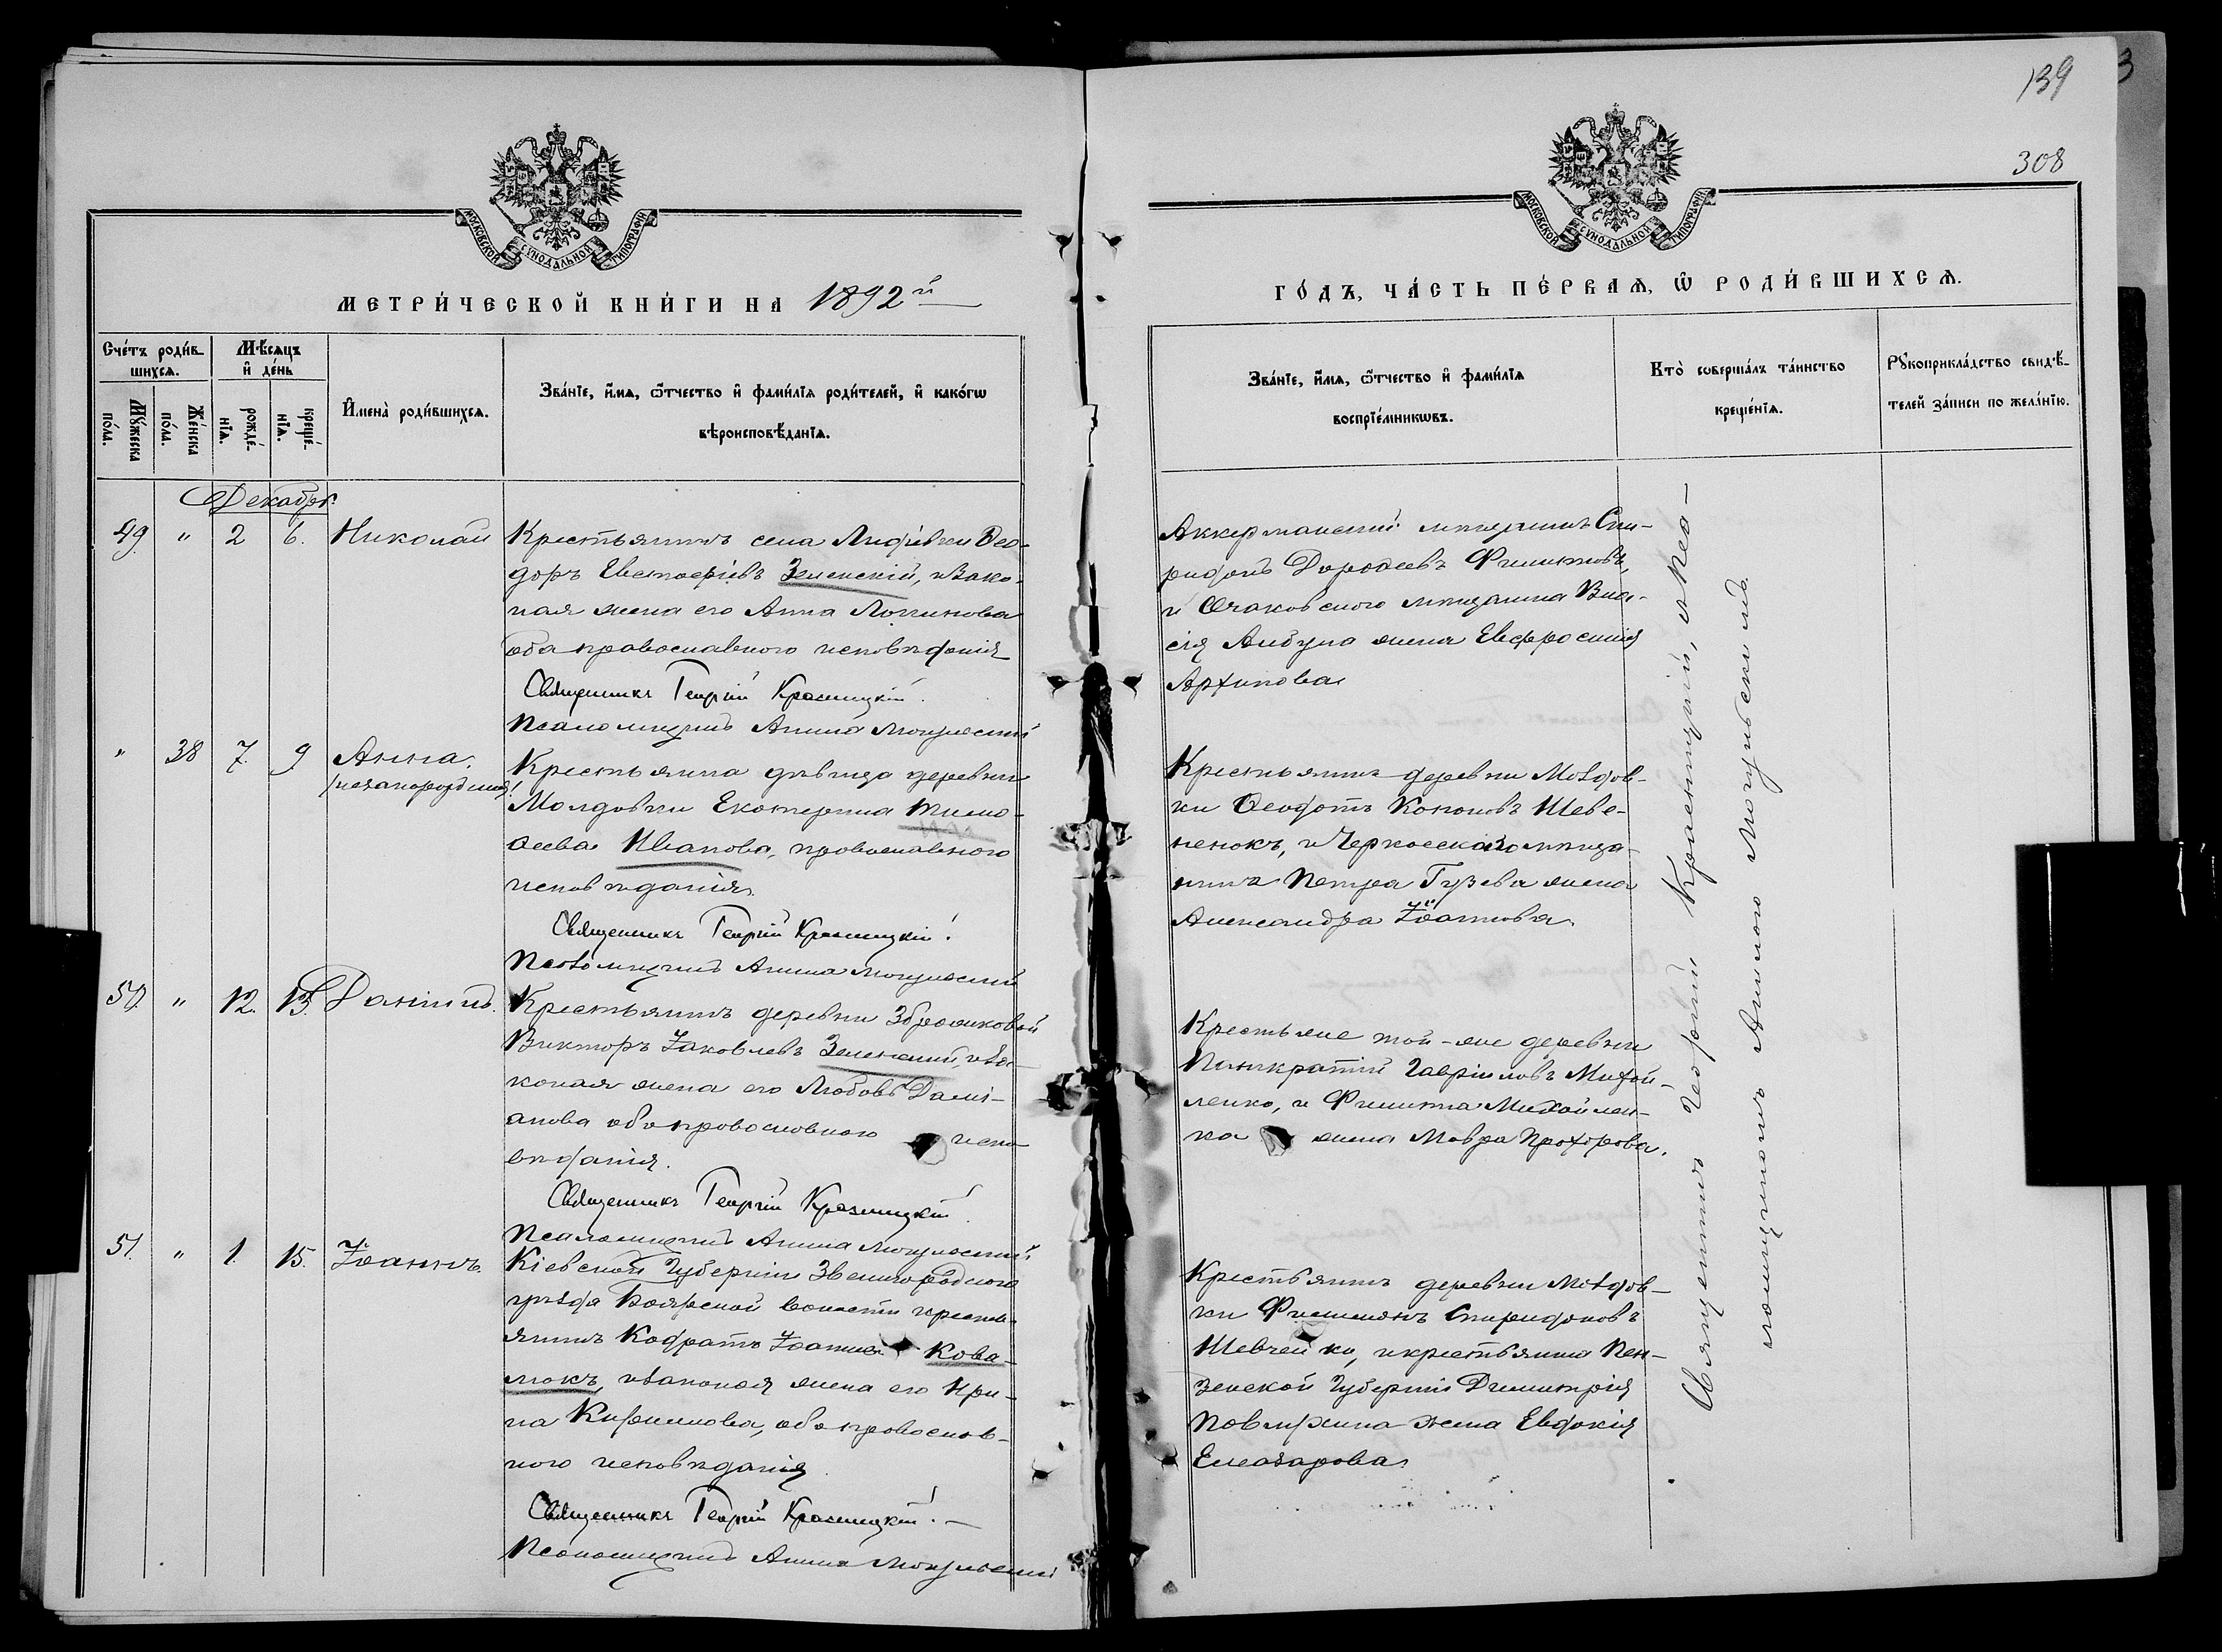 139
3
308
МОСКОВСКОЙ СѴНОДАЛЬНОЙ ТИПОГРАФІИ
МОСКОВСКОЙ СѴНОДАЛЬНОЙ ТИПОГРАФІИ
МЕТРИ́ЧЕСКОЙ КНИ́ГИ НА 1892й
ГО́ДЪ, ЧА́СТЬ ПЕ́РВАѦ, Ѽ РОДИ́ВШИХСѦ.
Сче́тъ роди́в-
шихсѧ.
Мꙋ́жеска
по́ла.
Же́нска
по́ла.
Мѣ́сѧцъ
и҆ де́нь
рожде́-
нїѧ.
креще́-
нїѧ.
И҆мена̀ роди́вшихсѧ.
Зва́нїе, и҆́мѧ, ѻ҆́тчество и҆ фами́лїѧ роди́телей, и҆ како́гѡ
вѣроисповѣ́данїѧ.
Зва́нїе, и҆́мѧ, ѻ҆́тчество и҆ фами́лїѧ
воспрїе́мникѡвъ.
Кто̀ соверша́лъ та́инство
креще́нїѧ.
Рꙋкоприкла́дство свидѣ́-
телей за́писи по жела́нїю.
Декабрь.
49. " 2 6. Николай
Крестьянинъ села Ѳео-
доръ Евстафіевъ Зеленскій, и зако-
ная жена его Анна Логинова
оба православного исповѣданія
Священникъ Георгій Красницкій.
Псаломщикъ Могульскій
Аккерманскій мещанинъ Спи-
ридонъ Дорофеевъ Филиповъ,
и Очаковского мещанина Вла-
сія жена Евфросинія
Архипова
" 38 7. 9 Анна.
/незаконорожденная/
Крестьянка дѣвица деревни
Молдовки Екатерина Тимо-
ѳеева Иванова, православного
исповѣданія.
Священникъ Георгій Красницкій.
Псаломщикъ Могульскій
Крестьянинъ деревни Молдов-
ки Ѳеодотъ Кононовъ Шеве-
ненокъ, и Черкасского меща-
нина Петра Гузева жена
Александра Іоаннова.
50. " 12. 13. Даніилъ.
Крестьянинъ деревни
Викторъ Іаковлевъ Зеленский, и за-
коная жена его Любовь Дамі-
анова оба православного испо
вѣданія.
Священникъ Георгій Красницкій.
Псаломщикъ Могульскій
Крестьяне той-же деревни
Панкратій Гавріиловъ Михай-
ленко, и Филиппа Михайлен-
ка жена Мавра Прохорова.
51. " 1. 15. Іоаннъ.
Кіевской Губерніи Звенигородского
уѣзда Боярской волости кресть-
янинъ Кодратъ Іоаннов Кова-
люкъ, и законая жена его Ири-
на Кирилова, оба православ-
ного исповѣданія
Священникъ Георгій Красницкій. —
Псаломщикъ Могульскій
Крестьянинъ деревни Молдов-
ки Филимонъ Спиридоновъ
Шевченко, и крестьянина Пен-
зенской Губерніи Димитрія
жена Евдокія
Елеазарова.
Священникъ Георгій Красницкій, и пса-
ломщикомъ Могульскимъ.